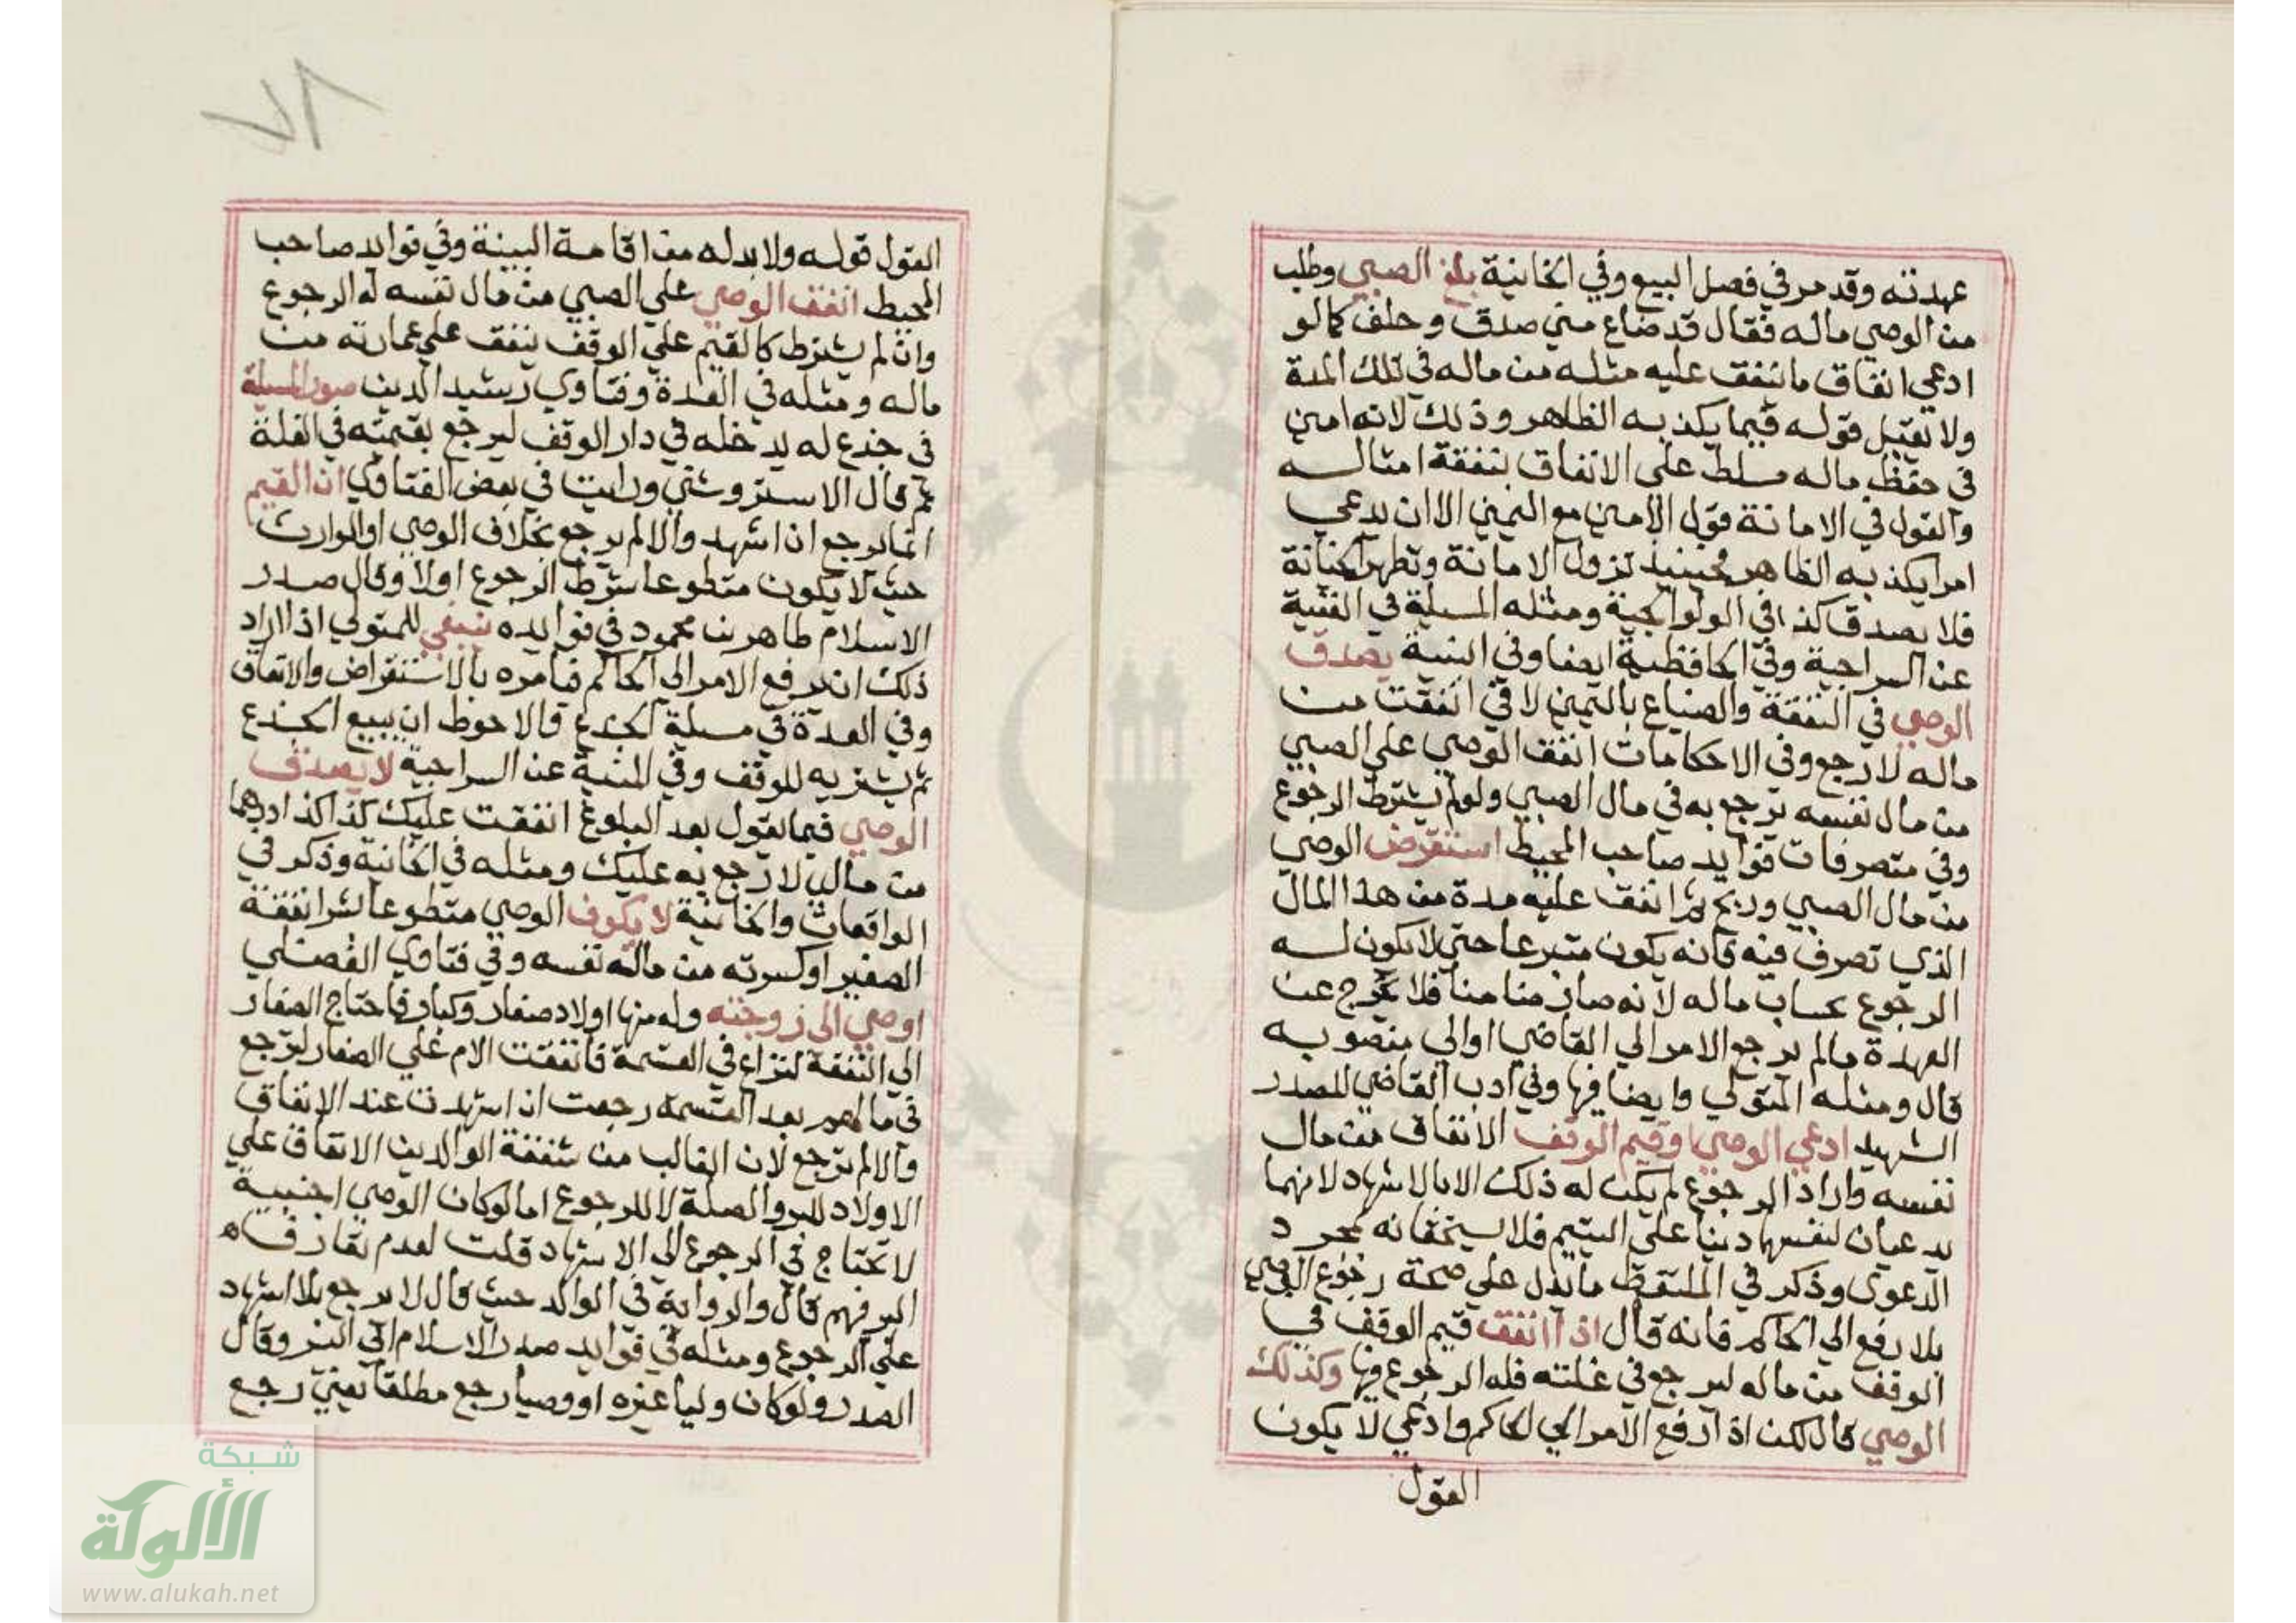 عهدته وقد مر في فصل البيع وفي الخانية بلغ الصبي وطلب
من الوصي ماله فقال قد ضاع مني صدق وحلف كما لو
ادعي انفاق ما ينفق عليه مثله من ماله في تلك المدة
ولا تقبل قوله فيما يكذبه الظاهر وذلك لانه امين
في حفظ ماله مسلط علي الانفاق بنفقة امثاله
والقول في الامانة قول الامين مع اليمين الا ان يدعي
امرا يكذبه الظاهر فحينئذ تزول الامانة وتظهر الخيانة
فلا يصدق كذا في الولوالجية ومثله المسيلة في القنية
عن السراجية وفي الحافظية ايضا وفي البنية يصدق
الوصي في النفقة والضياع باليمين لا في انفقت من
ماله لارجع وفي الاحكامات انفق الوصي علي الصبي
من مال نفسه يرجع به في مال الصبي ولو لم يشترط الرجوع
وفي متصرفات فوايد صاحب المحيط استقرض الوصي
من مال الصبي وربح ثم انفق عليه مدة من هذا المال
الذي تصرف فيه فانه يكون متبرعا حتي لا يكون له
الرجوع بحساب ماله لانه صار ضامنا فلا يخرج عن
العهدة مالم يرجع الامر الي القاضي او الي منصوبه
قال ومثله المتولي وايضا فيها وفي ادب القاضي للصدر
الشهيد ادعي الوصي او قيم الوقف الانفاق من مال
نفسه واراد الرجوع لم يكن له ذلك الا بالاشهاد لانهما
يدعيان لنفسهما دينا علي اليتيم فلا يستحقانه بمجرد
الدعوى وذكر في الملتقط ما يدل علي صحة رجوع الوصي
بلا رفع الي الحاكم فانه قال اذا انفق قيم الوقف في
الوقف من ماله ليرجع في غلته فله الرجوع فيها وكذلك
الوصي قال لكن اذا رفع الامر الي الحاكم وادعي لا يكون
القول
القول قوله ولا بد له من اقامة البينة وفي فوايد صاحب
المحيط انفق الوصي علي الصبي من مال نفسه له الرجوع
وان لم يشترط كالقيم علي الوقف ينفق علي عمارته من
ماله ومثله في العدة وفتاوي رشيد الدين صور المسيلة
في جذع له يدخله في دار الوقف ليرجع بقيمته في الغلة
ثم قال الاستروشني ورايت في بعض الفتاوي ان القيم
انما يرجع ان اشهد والا لم يرجع بخلاف الوصي او الوارث
حيث لا يكون متطوعا شرط الرجوع اولا وقال صدر
الاسلام طاهر بن محمود في فوايده ينبغي للمتولي اذا اراد
ذلك ان يرفع الامر الي الحاكم فيامره بالاستقراض والانفاق
وفي العدة في مسيلة الجذع قالاحوط ان يبيع الجذع
ثم يشتريه للوقف وفي المنية عن السراجية لا يصدق
الوصي فيما يقول بعد البلوغ انفقت عليك كذا كذا درهما
من مالي لارجع به عليك ومثله في الخانية وذكر في
الواقعات والخانية لا يكون الوصي متطوعا بشرا نفقة
الصغير او كسوته من مال نفسه وفي فتاوي الفضلي
اوصي الي زوجته وله منها اولاد صغار وكبار فاحتاج الصغار
الي النفقة لنزاع في القسمة فانفقت الام علي الصغار لترجع
في مالهم بعد القسمة رجعت ان اشهدت عند الانفاق
والا لم ترجع لان الغالب من شفقة الوالدين الانفاق علي
الاولاد للبر والصلة لا للرجوع اما لو كان الوصي اجنبية
لا تحتاج في الرجوع الي الاشهاد قلت لعدم تعارف
البر فيهم قال والرواية في الوالد حيث قال لا يرجع بلا اشهاد
علي الرجوع ومثله في فوايد صدر الاسلام الي البر وقال
الصدر ولو كان وليا غيره او وصيا رجع مطلقا يعني رجع
شبكة
الألوكة
www.alukah.net